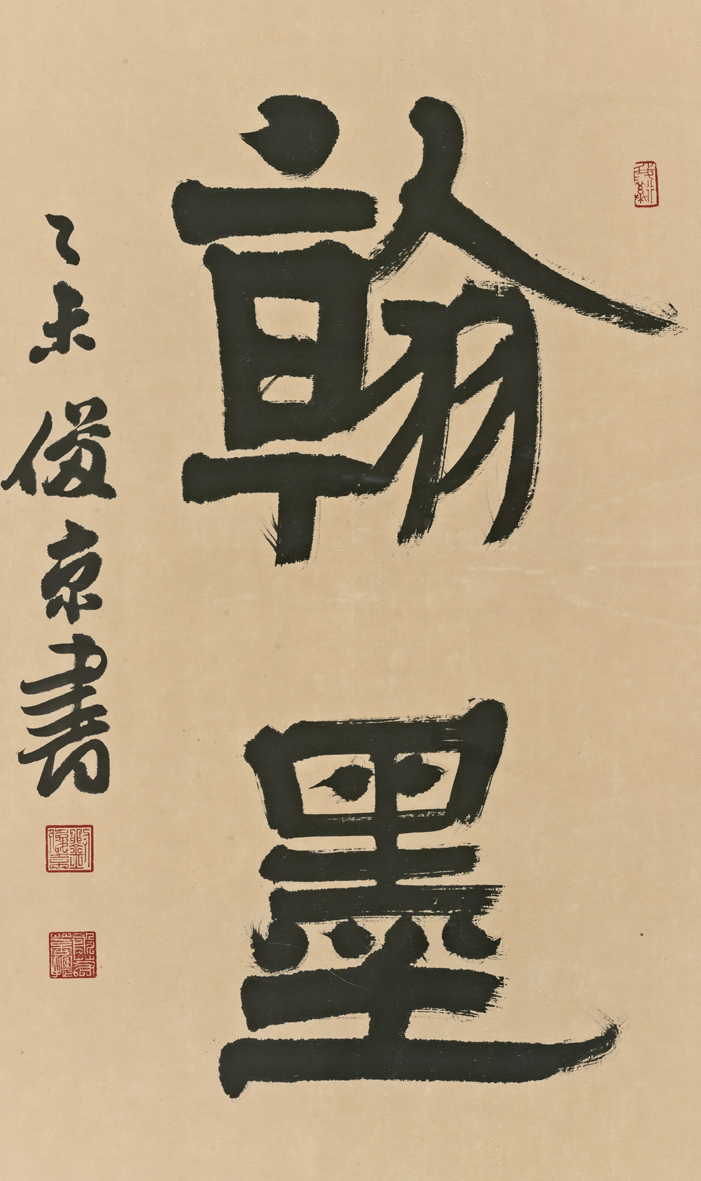 翰墨
乙未俊京書